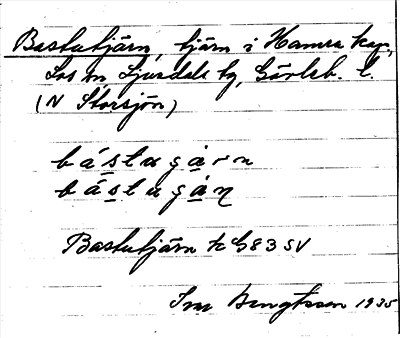 Bastutjärn, tjärn i Hamra kap.,
Los sn, Ljusdals tg, Gävleb. l.
(N Storsjön)
bástugàrn
bástugàn
Bastutjärn tk G83 SV
Ivar Bengtsson 1935